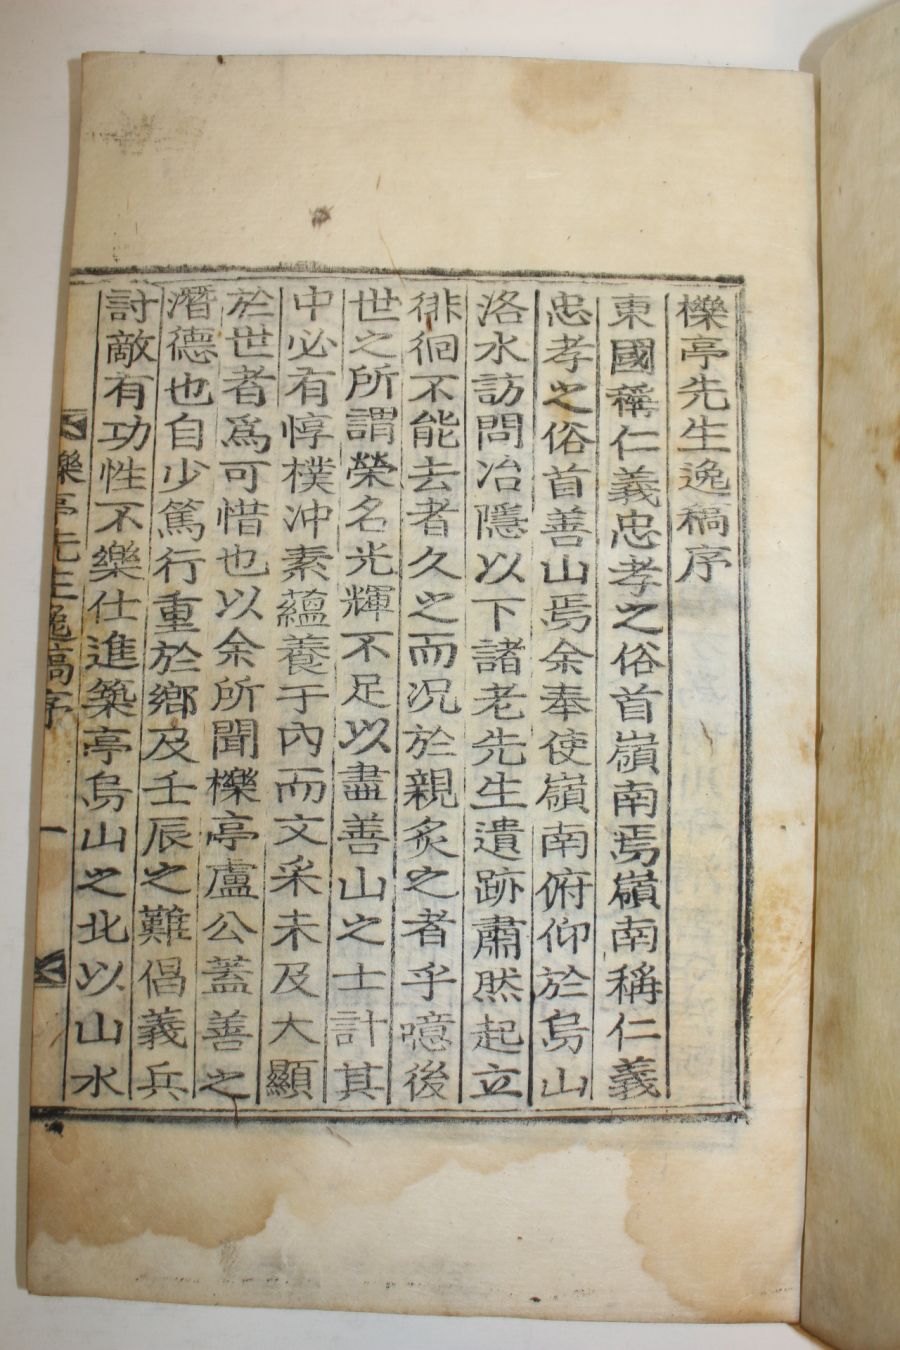 櫟亭先生逸稿序
東國稱仁義忠孝之俗首嶺南焉嶺南稱仁義
忠孝之俗首善山焉余奉使嶺南俯仰於烏山
洛水訪問冶隱以下諸老先生遺跡肅然起立
徘徊不能去者久之而况於親炙之者乎噫後
世之所謂榮名光輝不足以盡善山之士計其
中必有惇樸冲素蘊養于內而文采未及大顯
於世者爲可惜也以余所聞櫟亭盧公蓋善之
潛德也自少篤行重於鄕及壬辰之難倡義兵
討敵有功性不樂仕進築亭烏山之北以山水
櫟亭先生逸稿序 一